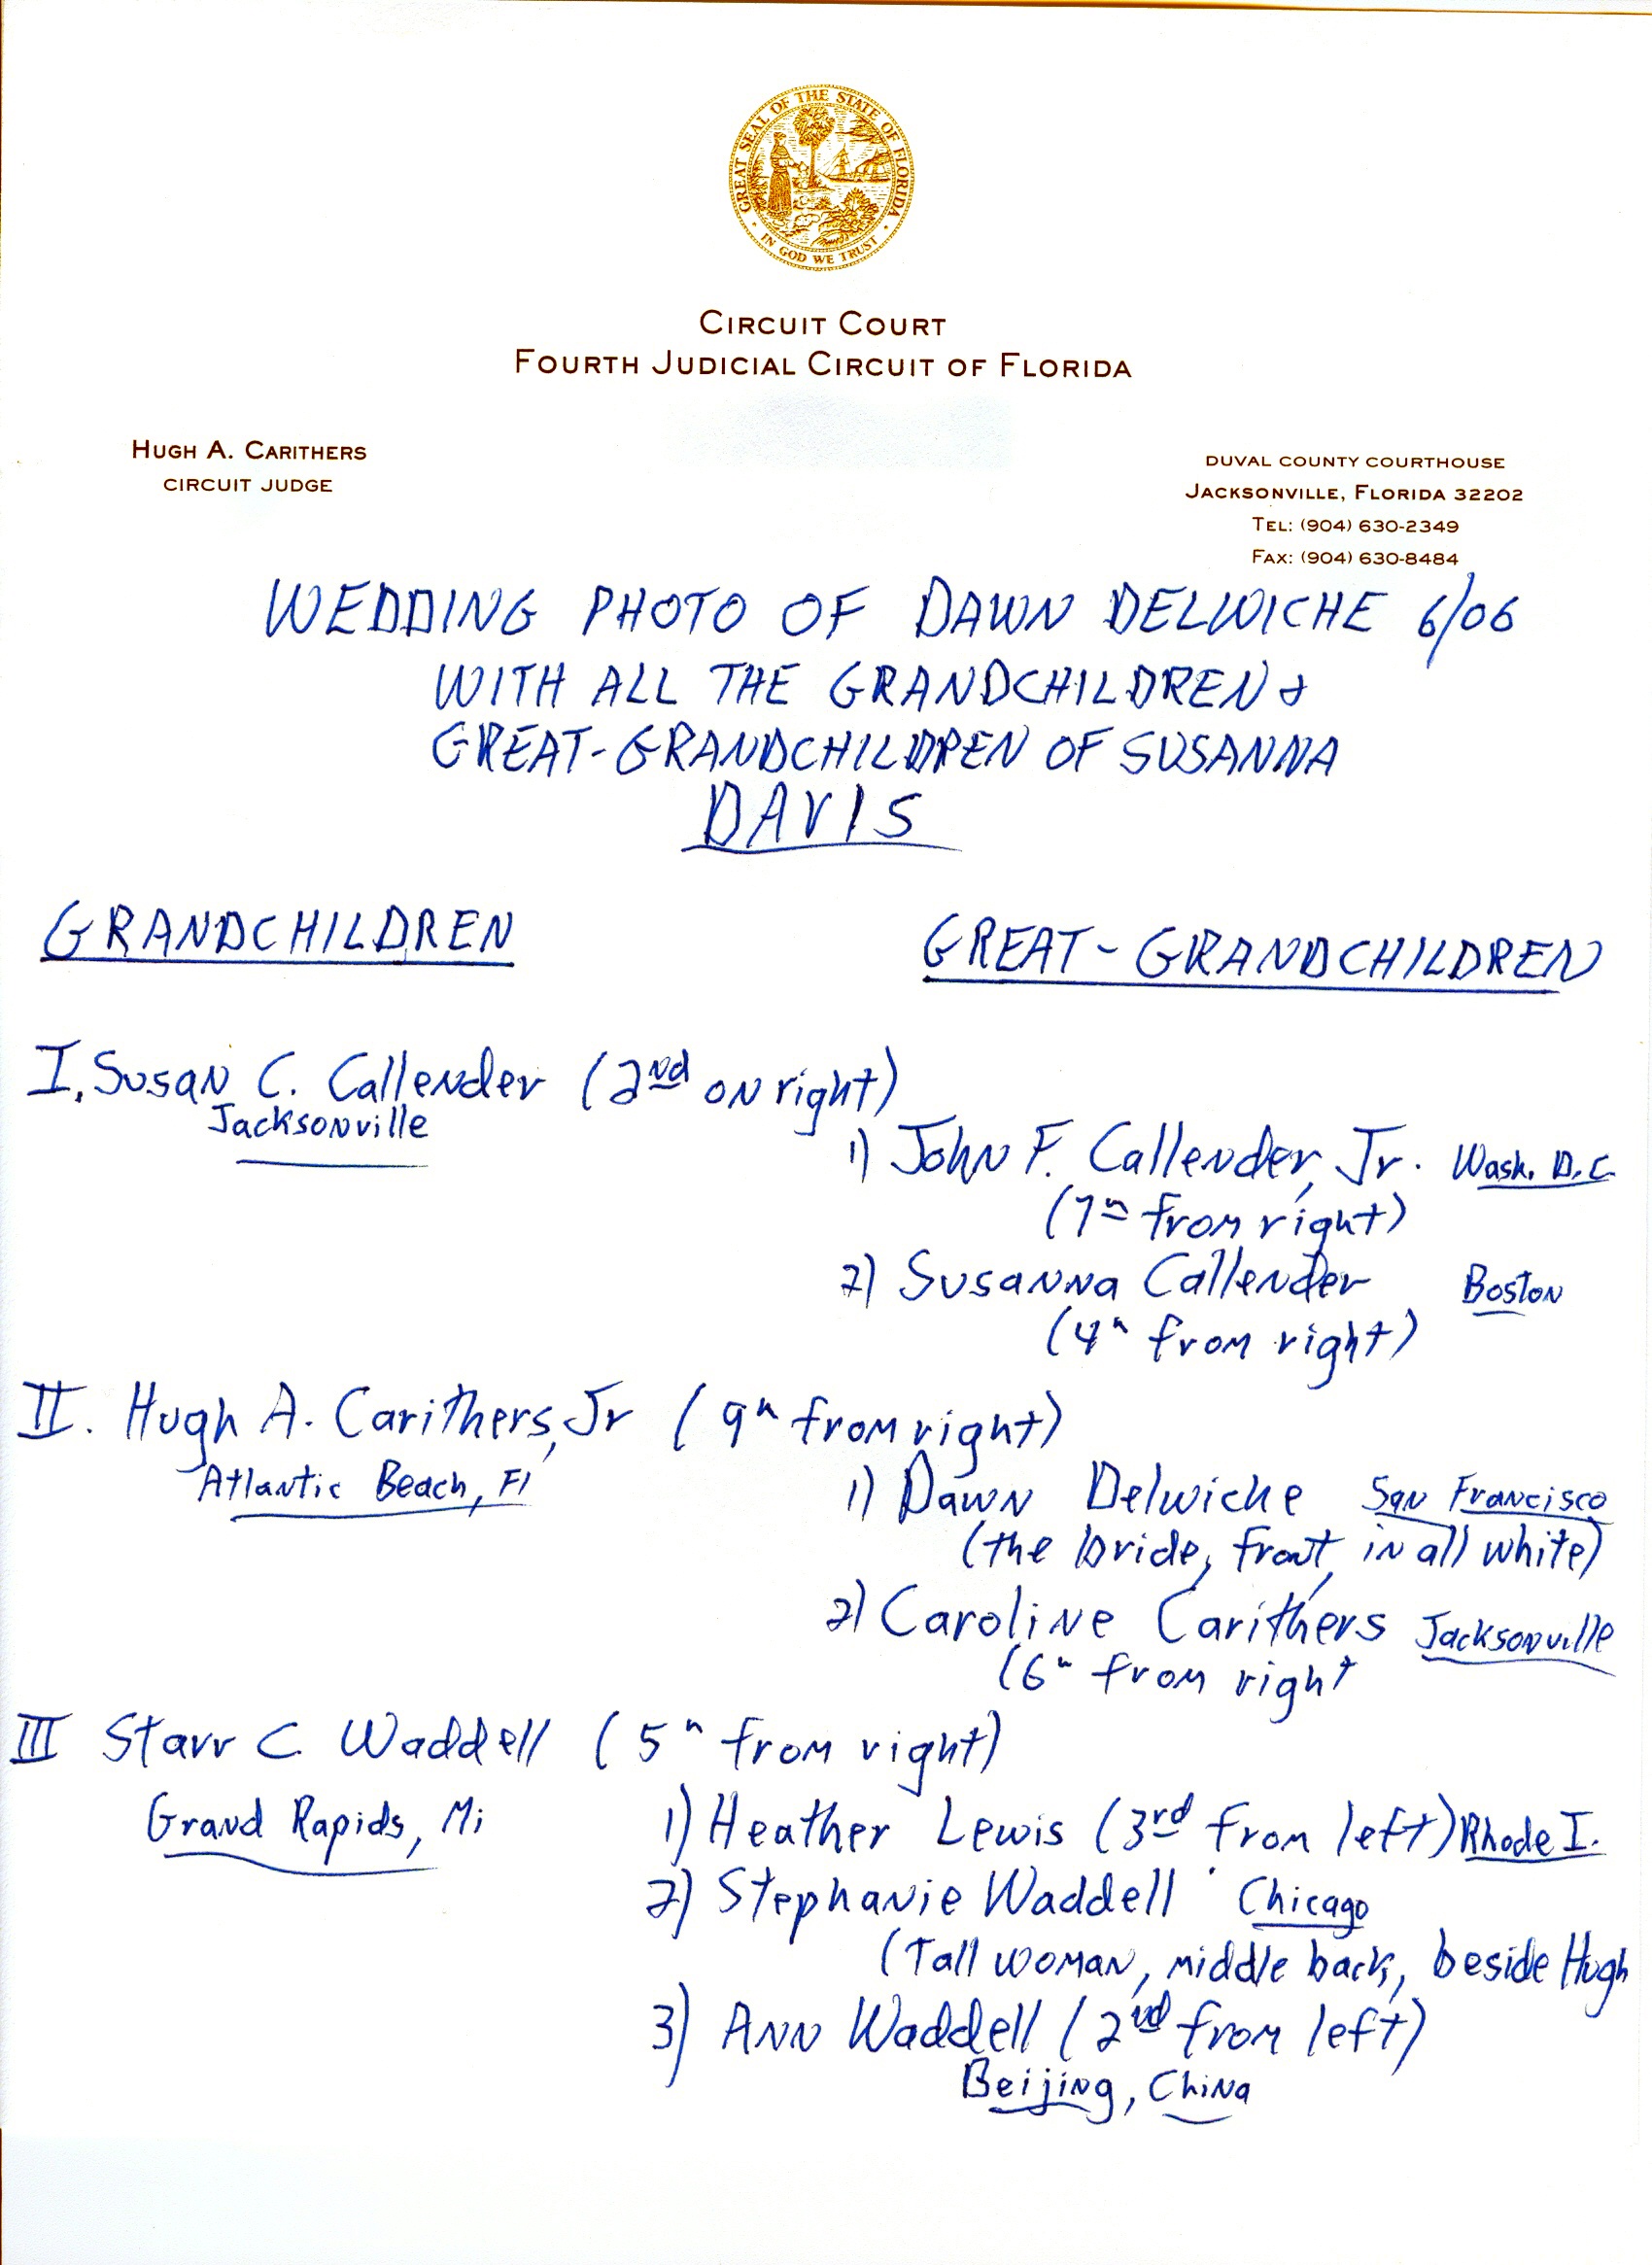 GREAT SEAL OF THE STATE OF FLORIDA
IN GOD WE TRUST
CIRCUIT COURT
FOURTH JUDICIAL CIRCUIT OF FLORIDA
HUGH A. CARITHERS
CIRCUIT JUDGE
DUVAL COUNTY COURTHOUSE
JACKSONVILLE, FLORIDA 32202
TEL: (904) 630-2349
FAX: (904) 630-8484
WEDDING PHOTO OF DAWN DELWICHE 6/06
WITH ALL THE GRANDCHILDREN &
GREAT-GRANDCHILDREN OF SUSANNA
DAVIS
GRANDCHILDREN
GREAT-GRANDCHILDREN
I. Susan C. Callender (2nd on right)
Jacksonville
1) John F. Callender, Jr. Wash. D.C.
(7th from right)
2) Susanna Callender Boston
(4th from right)
II. Hugh A. Carithers, Jr (9th from right)
Atlantic Beach, Fl
1) Dawn Delwiche San Francisco
(the bride, front, in all white)
2) Caroline Carithers Jacksonville
(6th from right
III Starr C. Waddell (5th from right)
Grand Rapids, Mi
1) Heather Lewis (3rd from left) Rhode I.
2) Stephanie Waddell Chicago
(Tall woman, middle back, beside Hugh
3) Ann Waddell (2nd from left)
Beijing, China